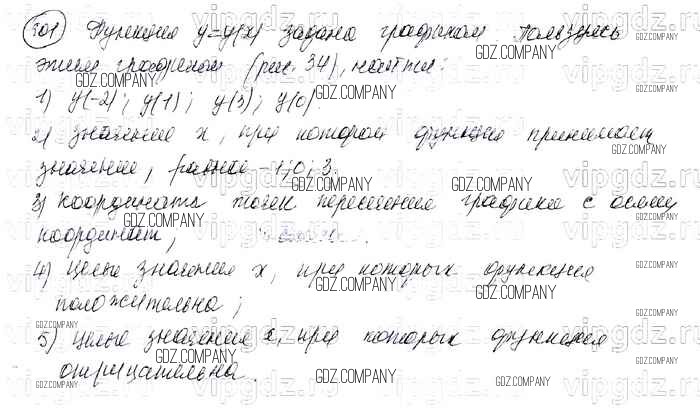 301 Функция y=y(x) задана графиком. Пользуясь
этим графиком (рис. 34), найти:
1) y(-2); y(1); y(3); y(0)
2) значение x, при котором функция принимает
значение, равное -1; 0; 3.
3) координаты точек пересечения графика с осями
координат;
4) целые значения x, при которых функция
положительна;
5) целые значения x, при которых функция
отрицательна.
GDZ.COMPANY
vipgdz.ru